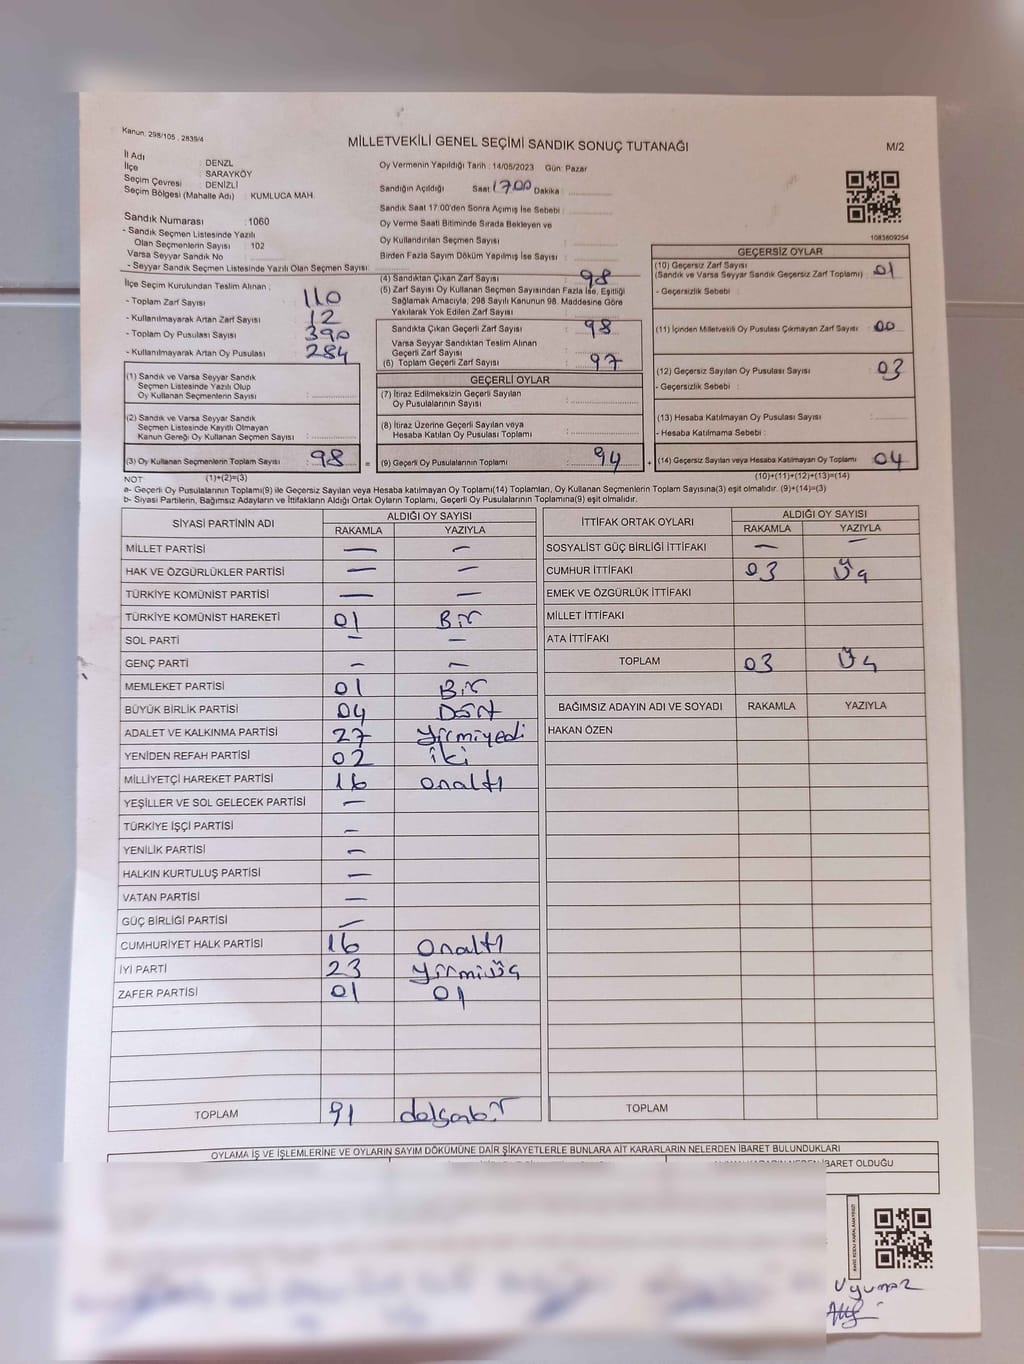 Kanun: 298/105 , 2839/4
MİLLETVEKİLİ GENEL SEÇİMİ SANDIK SONUÇ TUTANAĞI
M/2
İl Adı : DENZL
İlçe : SARAYKÖY
Seçim Çevresi : DENİZLİ
Seçim Bölgesi (Mahalle Adı) : KUMLUCA MAH.
Sandık Numarası : 1060
- Sandık Seçmen Listesinde Yazılı
Olan Seçmenlerin Sayısı : 102
Varsa Seyyar Sandık No :
- Seyyar Sandık Seçmen Listesinde Yazılı Olan Seçmen Sayısı:
Oy Vermenin Yapıldığı Tarih : 14/05/2023 Gün: Pazar
Sandığın Açıldığı Saat 17.00 Dakika :
Sandık Saat 17:00'den Sonra Açılmış İse Sebebi :
Oy Verme Saati Bitiminde Sırada Bekleyen ve
Oy Kullandırılan Seçmen Sayısı :
Birden Fazla Sayım Döküm Yapılmış İse Sayısı :
1083609254
İlçe Seçim Kurulundan Teslim Alınan :
- Toplam Zarf Sayısı : 110
- Kullanılmayarak Artan Zarf Sayısı : 12
- Toplam Oy Pusulası Sayısı : 390
- Kullanılmayarak Artan Oy Pusulası : 284
(1) Sandık ve Varsa Seyyar Sandık
Seçmen Listesinde Yazılı Olup
Oy Kullanan Seçmenlerin Sayısı :
(2) Sandık ve Varsa Seyyar Sandık
Seçmen Listesinde Kayıtlı Olmayan
Kanun Gereği Oy Kullanan Seçmen Sayısı :
(3) Oy Kullanan Seçmenlerin Toplam Sayısı : 98
(4) Sandıktan Çıkan Zarf Sayısı : 98
(5) Zarf Sayısı Oy Kullanan Seçmen Sayısından Fazla İse, Eşitliği
Sağlamak Amacıyla, 298 Sayılı Kanunun 98. Maddesine Göre
Yakılarak Yok Edilen Zarf Sayısı :
Sandıkta Çıkan Geçerli Zarf Sayısı : 98
Varsa Seyyar Sandıktan Teslim Alınan
Geçerli Zarf Sayısı :
(6) Toplam Geçerli Zarf Sayısı : 97
GEÇERLİ OYLAR
(7) İtiraz Edilmeksizin Geçerli Sayılan
Oy Pusulalarının Sayısı :
(8) İtiraz Üzerine Geçerli Sayılan veya
Hesaba Katılan Oy Pusulası Toplamı :
= (9) Geçerli Oy Pusulalarının Toplamı : 94
GEÇERSİZ OYLAR
(10) Geçersiz Zarf Sayısı
(Sandık ve Varsa Seyyar Sandık Geçersiz Zarf Toplamı) : 01
- Geçersizlik Sebebi :
(11) İçinden Milletvekili Oy Pusulası Çıkmayan Zarf Sayısı : 00
(12) Geçersiz Sayılan Oy Pusulası Sayısı : 03
- Geçersizlik Sebebi :
(13) Hesaba Katılmayan Oy Pusulası Sayısı :
- Hesaba Katılmama Sebebi :
+ (14) Geçersiz Sayılan veya Hesaba Katılmayan Oy Toplamı : 04
NOT: (1)+(2)=(3) (10)+(11)+(12)+(13)=(14)
a- Geçerli Oy Pusulalarının Toplamı(9) ile Geçersiz Sayılan veya Hesaba katılmayan Oy Toplamı(14) Toplamları, Oy Kullanan Seçmenlerin Toplam Sayısına(3) eşit olmalıdır. (9)+(14)=(3)
b- Siyasi Partilerin, Bağımsız Adayların ve İttifakların Aldığı Ortak Oyların Toplamı, Geçerli Oy Pusulalarının Toplamına(9) eşit olmalıdır.
SİYASİ PARTİNİN ADI ALDIĞI OY SAYISI
RAKAMLA YAZIYLA
MİLLET PARTİSİ — —
HAK VE ÖZGÜRLÜKLER PARTİSİ — —
TÜRKİYE KOMÜNİST PARTİSİ — —
TÜRKİYE KOMÜNİST HAREKETİ 01 Bir
SOL PARTİ — —
GENÇ PARTİ — —
MEMLEKET PARTİSİ 01 Bir
BÜYÜK BİRLİK PARTİSİ 04 Dört
ADALET VE KALKINMA PARTİSİ 27 yirmiyedi
YENİDEN REFAH PARTİSİ 02 iki
MİLLİYETÇİ HAREKET PARTİSİ 16 onaltı
YEŞİLLER VE SOL GELECEK PARTİSİ —
TÜRKİYE İŞÇİ PARTİSİ —
YENİLİK PARTİSİ —
HALKIN KURTULUŞ PARTİSİ —
VATAN PARTİSİ —
GÜÇ BİRLİĞİ PARTİSİ —
CUMHURİYET HALK PARTİSİ 16 onaltı
İYİ PARTİ 23 yirmiüç
ZAFER PARTİSİ 01 01
TOPLAM 91
İTTİFAK ORTAK OYLARI ALDIĞI OY SAYISI
RAKAMLA YAZIYLA
SOSYALİST GÜÇ BİRLİĞİ İTTİFAKI — —
CUMHUR İTTİFAKI 03 Üç
EMEK VE ÖZGÜRLÜK İTTİFAKI
MİLLET İTTİFAKI
ATA İTTİFAKI
TOPLAM 03 Üç
BAĞIMSIZ ADAYIN ADI VE SOYADI RAKAMLA YAZIYLA
HAKAN ÖZEN
TOPLAM
OYLAMA İŞ VE İŞLEMLERİNE VE OYLARIN SAYIM DÖKÜMÜNE DAİR ŞİKAYETLERLE BUNLARA AİT KARARLARIN NELERDEN İBARET BULUNDUKLARI
İBARET OLDUĞU